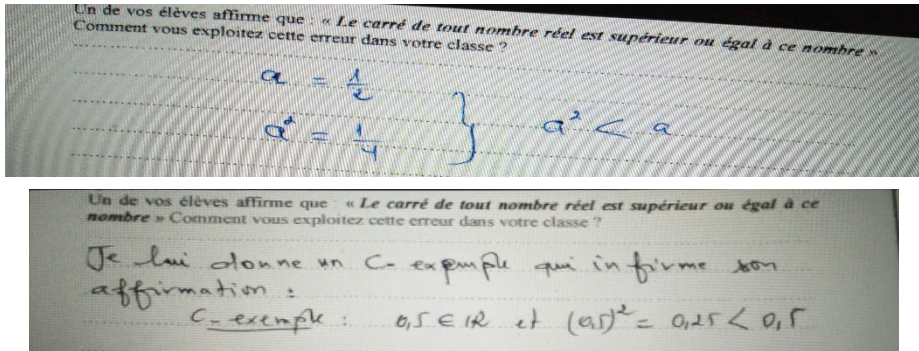 Un de vos élèves affirme que : « Le carré de tout nombre réel est supérieur ou égal à ce nombre »
Comment vous exploitez cette erreur dans votre classe ?
a = 1/2
a² = 1/4 } a² < a
Un de vos élèves affirme que : « Le carré de tout nombre réel est supérieur ou égal à ce
nombre » Comment vous exploitez cette erreur dans votre classe ?
Je lui donne un C-exemple qui infirme son
affirmation :
C-exemple : 0,5 ∈ IR et (0,5)² = 0,25 < 0,5